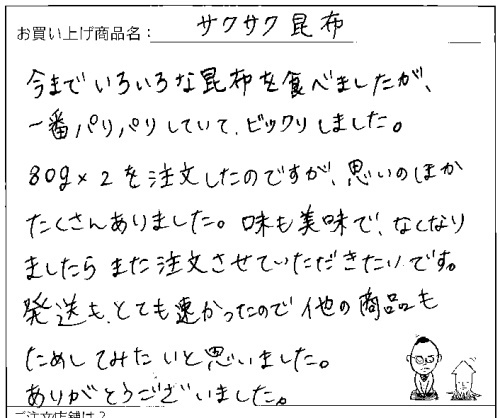 お買い上げ商品名: サクサク昆布
今までいろいろな昆布を食べましたが、
一番パリパリしていて、ビックリしました。
80g×2を注文したのですが、思いのほか
たくさんありました。味も美味で、なくなり
ましたらまた注文させていただきたいです。
発送も、とても速かったので他の商品も
ためしてみたいと思いました。
ありがとうございました。
ご注文店舗は?